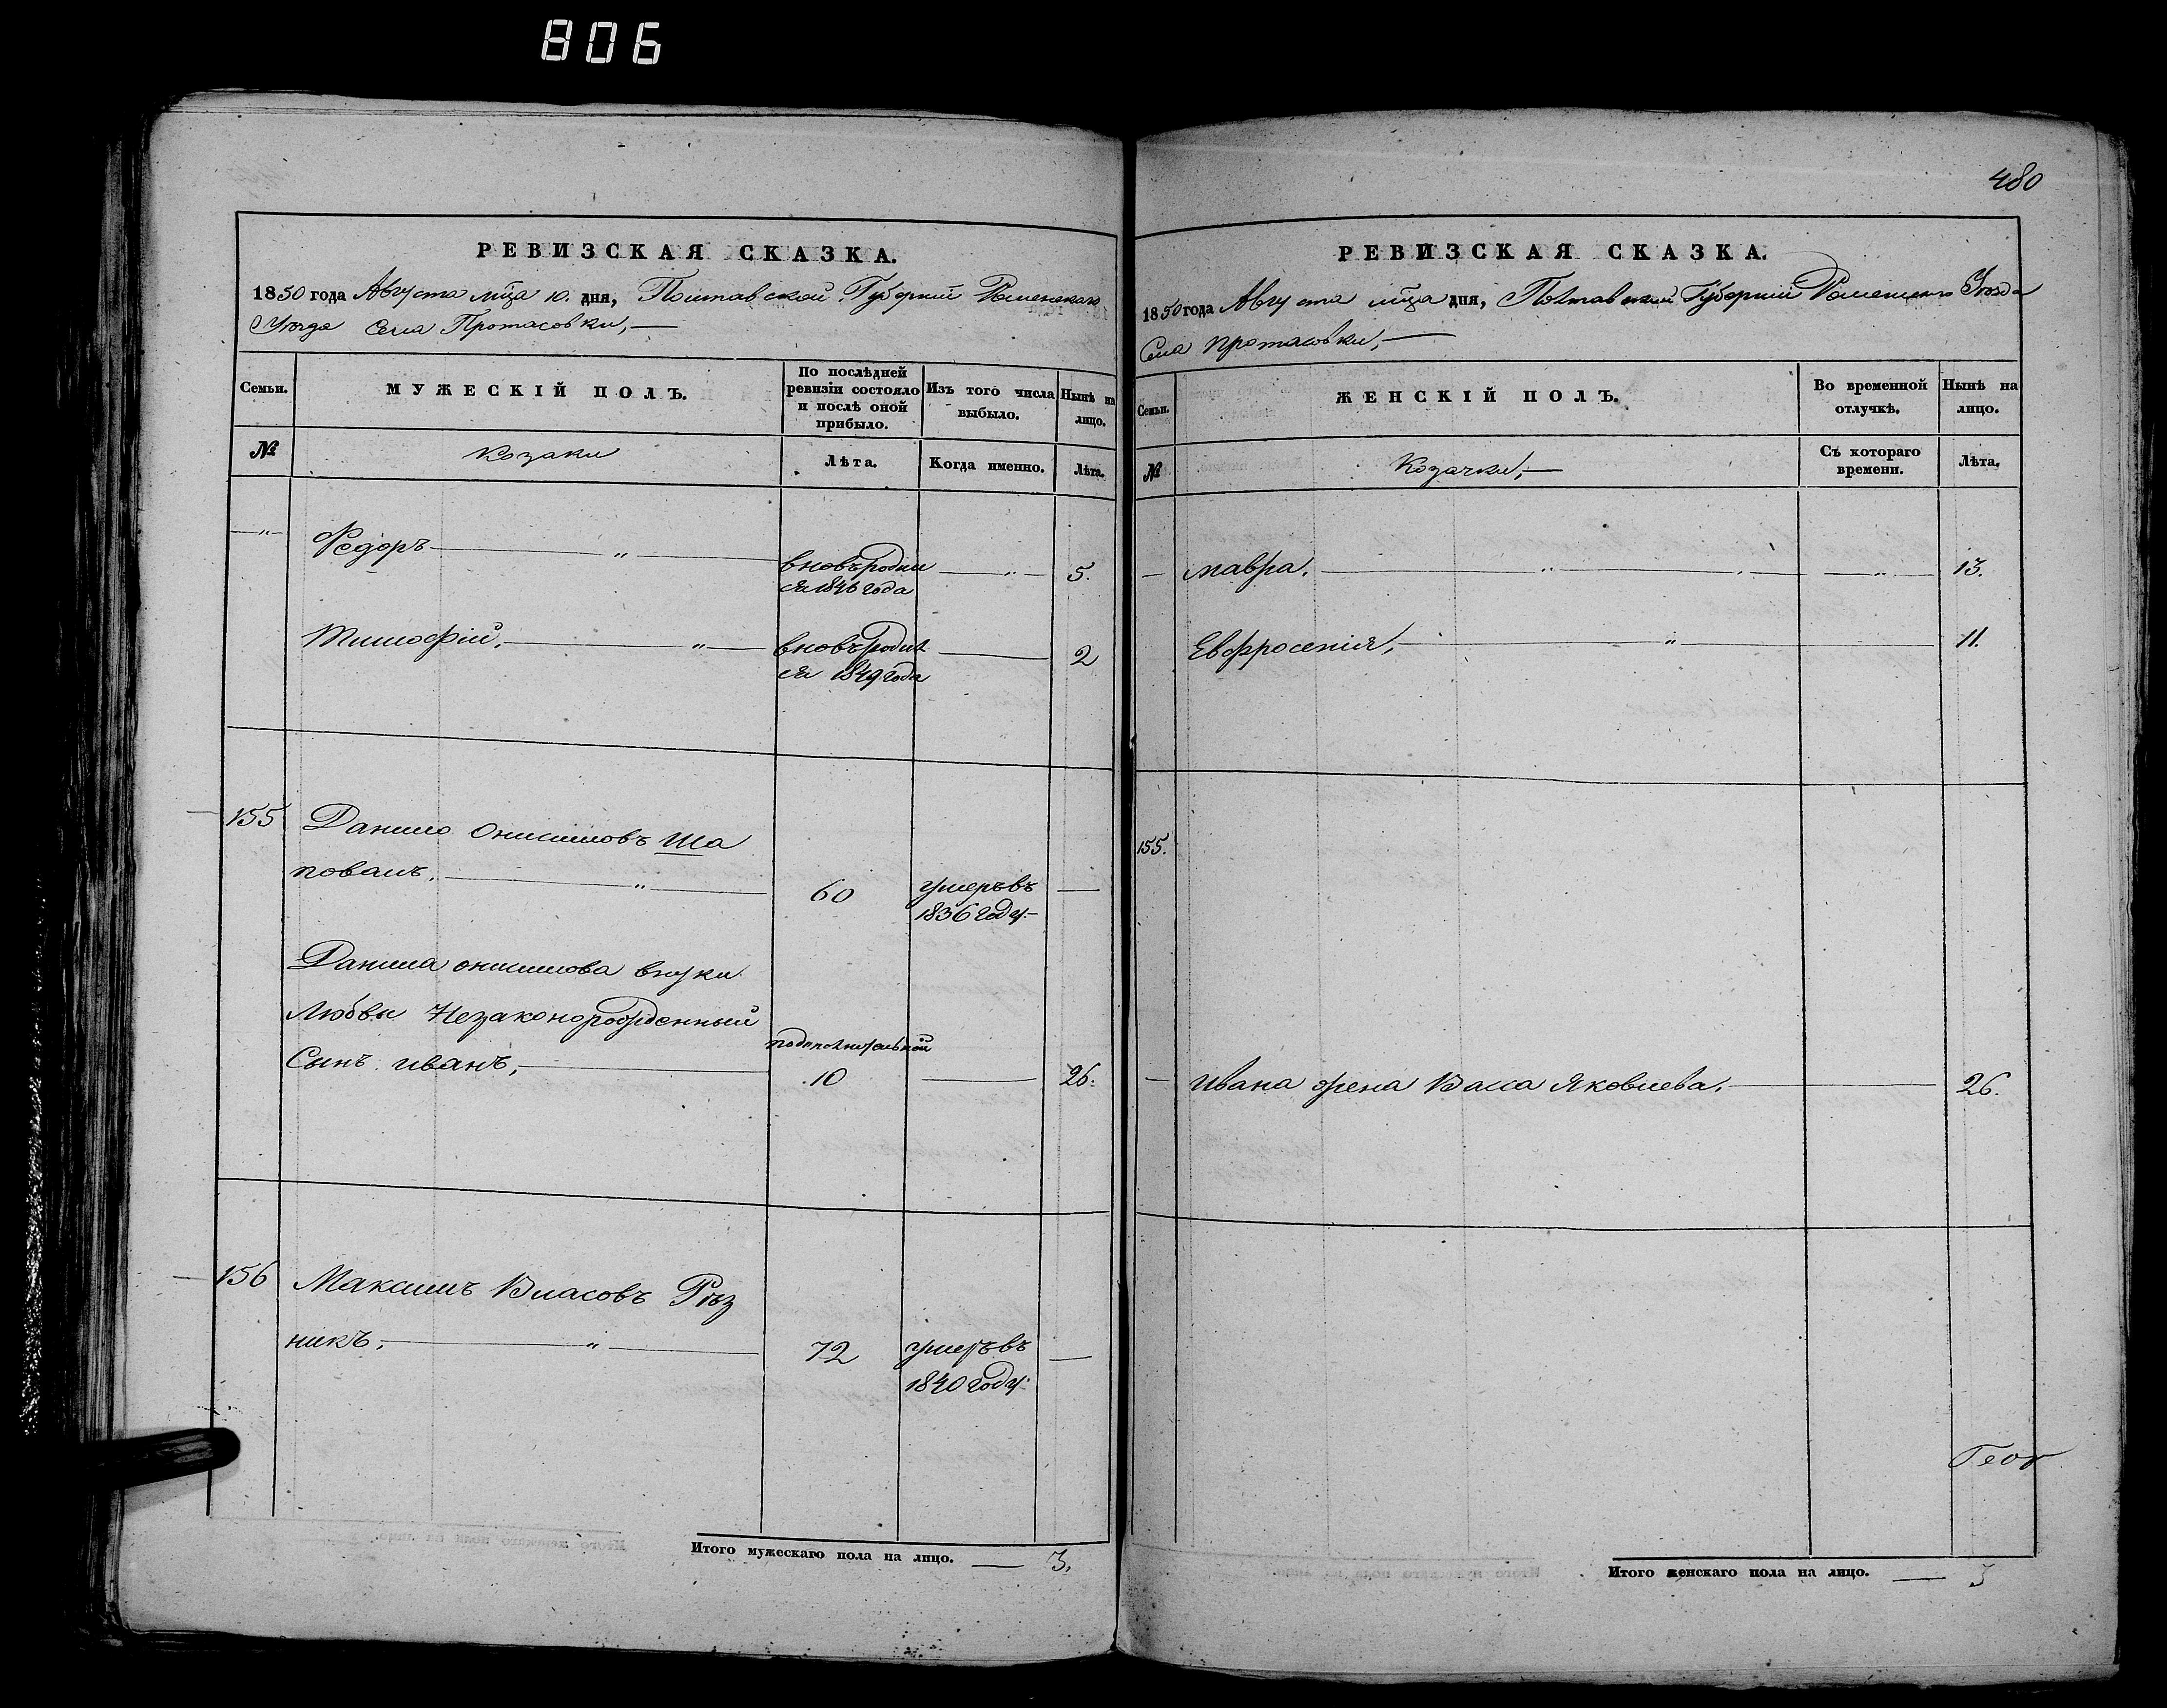 806
РЕВИЗСКАЯ СКАЗКА.
1850 года Августа мца 10. дня, Полтавской Губерніи Роменскаго
Уѣзда Села Протасовки,
Семьи.
МУЖЕСКІЙ ПОЛЪ.
По послѣдней
ревизіи состояло
и послѣ оной
прибыло.
Изъ того числа
выбыло.
Нынѣ на
лицо.
№
Козаки
Лѣта.
Когда именно.
Лѣта.
—„—
Федоръ — „ —
вновьродил
ся 1846 года
— „ —
5.
Тимофій. — „ —
вновьродил
ся 1849 года
—
2
155
Данило Онисимовъ Ша
повалъ. — „ —
60
умеръ въ
1836 году —
—
Данила онисимова внуки
Любвы Незаконорожденный
Сынъ иванъ, —
пополнительной
.10
—
26.
156
Максимъ Власовъ Рѣз
никъ. — „ —
72
умеръ въ
1840 году
—
Итого мужескаго пола на лицо. — 3.
480
РЕВИЗСКАЯ СКАЗКА.
1850 года Августа мца дня, Полтавской Губерніи Роменскаго Уѣзда
Села протасовки, —
Семьи.
ЖЕНСКІЙ ПОЛЪ.
Во временной
отлучкѣ.
Нынѣ на
лицо.
№
Козачки, —
Съ котораго
времени.
Лѣта.
— мавра. — „ — „ — „ — 13.
Евфросенія, — „ — 11.
155.
— ивана жена Васса Яковлева. — 26.
Геор
Итого женскаго пола на лицо. — 3